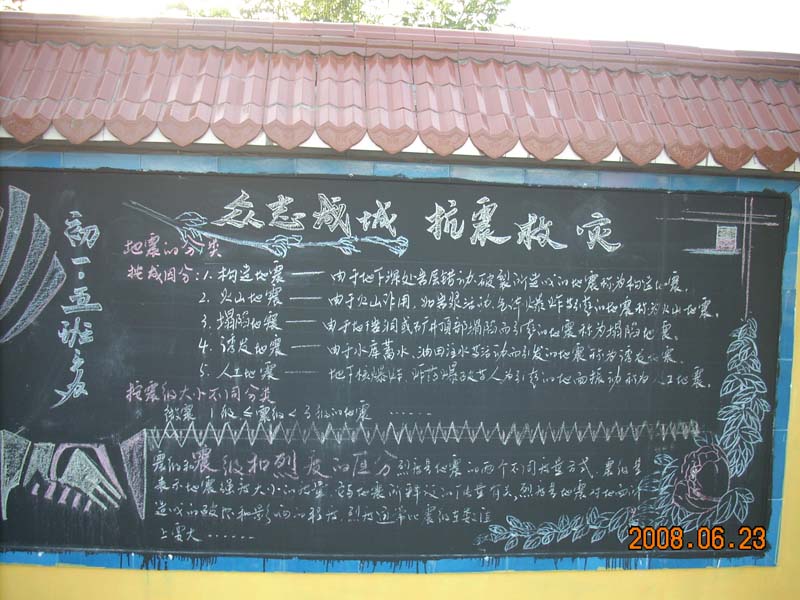 众志成城 抗震救灾
初一·五班
地震的分类
按成因分:1.构造地震——由于地下深处岩层错动、破裂所造成的地震称为构造地震。
2.火山地震——由于火山作用,如岩浆活动、气体爆炸等引起的地震称为火山地震。
3.塌陷地震——由于地下岩洞或矿井顶部塌陷而引起的地震称为塌陷地震。
4.诱发地震——由于水库蓄水、油田注水等活动而引发的地震称为诱发地震。
5.人工地震——地下核爆炸、炸药爆破等人为引起的地面振动称为人工地震。
按震级大小不同分类
1级≤震级<3级的地震……
震级和烈度的区分 烈度是地震的两个不同
表示地震强度大小的 地震所释放的能量有关,烈度是地震对地面
造成的破坏和影响的程度,烈度通常比震级在数值
上要大……
2008.06.23